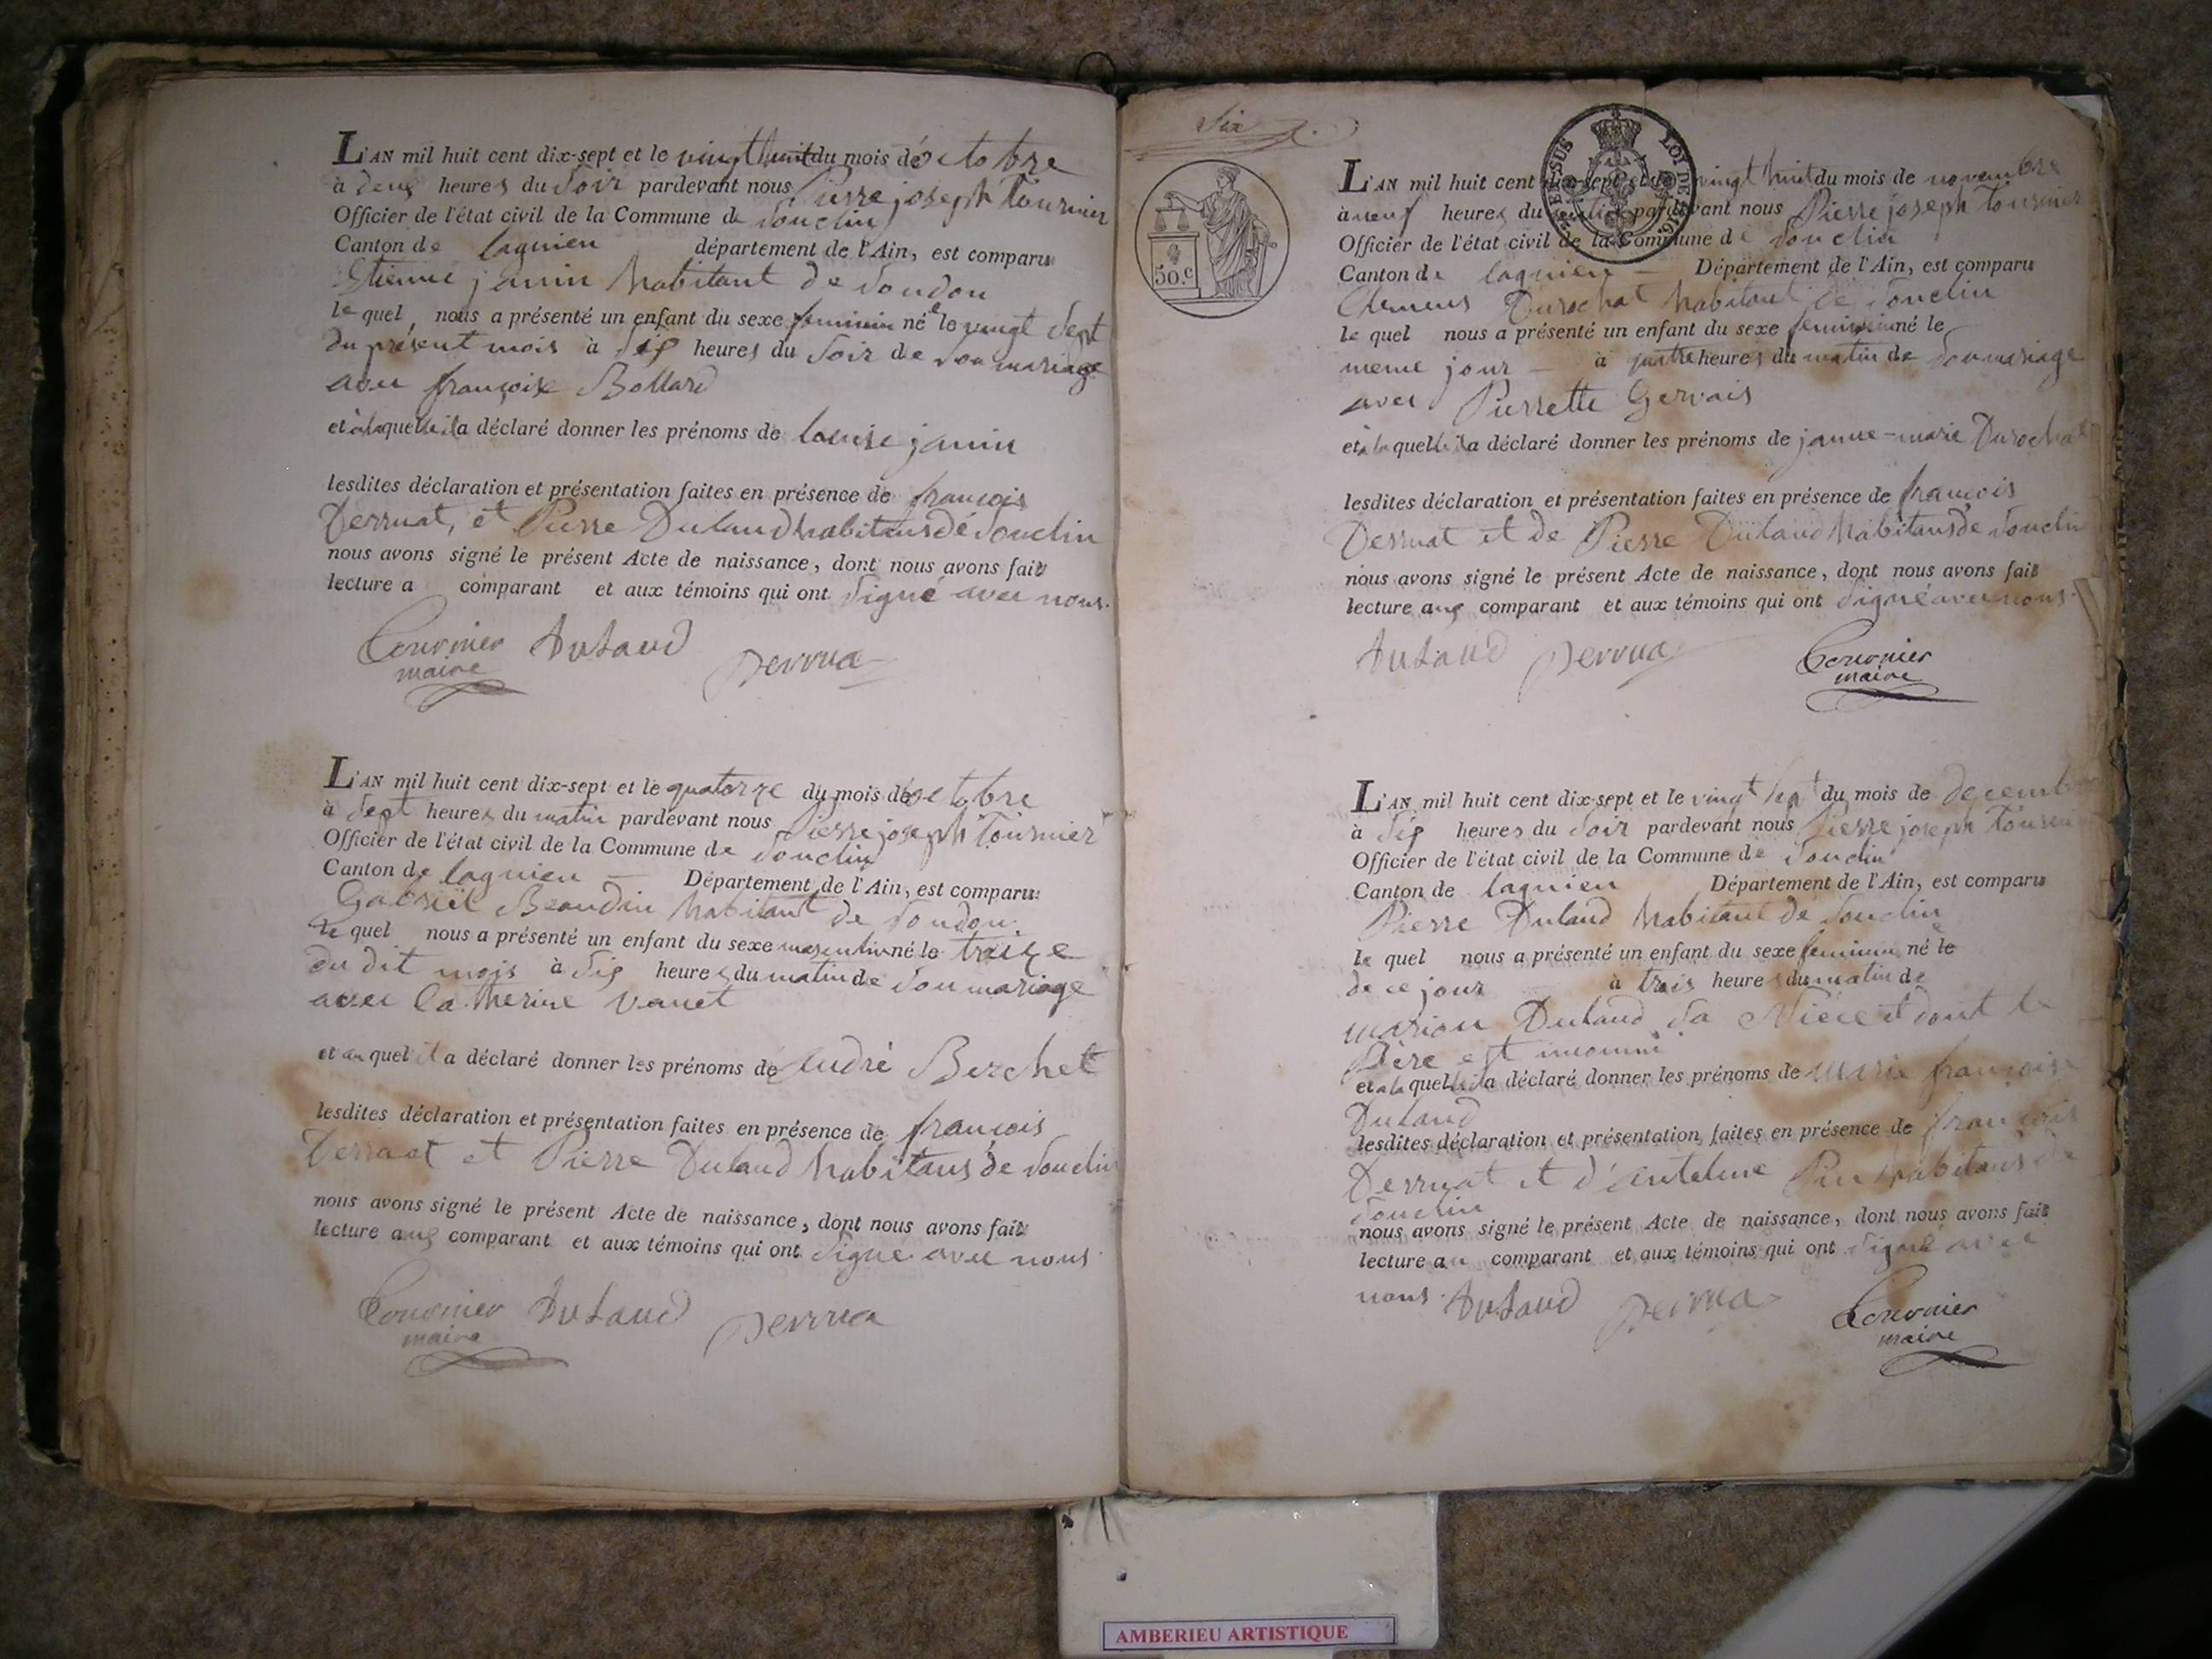 L'AN mil huit cent dix-sept et le vingt huit du mois de octobre
à deux heures du soir pardevant nous Pierre joseph Tournier
Officier de l'état civil de la Commune de Souclin
Canton de lagnieu département de l'Ain, est comparu
Etienne janin habitant de Soudon
le quel nous a présenté un enfant du sexe feminin né le vingt sept
du présent mois à six heures du soir de son mariage
avec françoise Bollard
et à laquelle il a déclaré donner les prénoms de louise janin
lesdites déclaration et présentation faites en présence de françois
Derruat, et Pierre Dulaud habitans de Souclin
nous avons signé le présent Acte de naissance, dont nous avons fait
lecture a comparant et aux témoins qui ont signé avec nous.
Tournier Dulaud Derrua
maire
L'AN mil huit cent dix-sept et le quatorze du mois de octobre
à sept heures du matin pardevant nous Pierre joseph Tournier
Officier de l'état civil de la Commune de Souclin
Canton de lagnieu Département de l'Ain, est comparu
Gabriel Beaudin habitant de Soudon.
le quel nous a présenté un enfant du sexe masculin né le treize
du dit mois à six heures du matin de son mariage
avec Catherine Vanet
et au quel il a déclaré donner les prénoms de André Berchet
lesdites déclaration et présentation faites en présence de françois
Derruat et Pierre Dulaud habitans de Souclin
nous avons signé le présent Acte de naissance, dont nous avons fait
lecture aux comparant et aux témoins qui ont signé avec nous
Tournier Dulaud Derrua
maire
Six
50.c
LOI DE
L'AN mil huit cent dix-sept et le vingt huit du mois de novembre
à neuf heures du matin pardevant nous Pierre joseph Tournier
Officier de l'état civil de la Commune de Souclin
Canton de lagnieu Département de l'Ain, est comparu
Clemens Durochat habitant de Souclin
le quel nous a présenté un enfant du sexe feminin né le
meme jour à quatre heures du matin de son mariage
avec Pierrette Gervais
et à la quelle il a déclaré donner les prénoms de janne-marie Durochat
lesdites déclaration et présentation faites en présence de françois
Derruat et de Pierre Dulaud habitans de Souclin
nous avons signé le présent Acte de naissance, dont nous avons fait
lecture aux comparant et aux témoins qui ont signé avec nous.
Dulaud Derrua Tournier
maire
L'AN mil huit cent dix-sept et le vingt sept du mois de decembre
à six heures du soir pardevant nous Pierre joseph Tournier
Officier de l'état civil de la Commune de Souclin
Canton de lagnieu Département de l'Ain, est comparu
Pierre Dulaud habitant de Souclin
le quel nous a présenté un enfant du sexe feminin né le
de ce jour à trois heures du matin de
marion Dulaud sa Niéce et dont le
Père est inconnu
et à la quelle il a déclaré donner les prénoms de marie françoise
Dulaud
lesdites déclaration et présentation faites en présence de françois
Derruat et d'anteline Pin habitans de
Souclin
nous avons signé le présent Acte de naissance, dont nous avons fait
lecture au comparant et aux témoins qui ont signé avec
nous. Dulaud Derrua Tournier
maire
AMBERIEU ARTISTIQUE